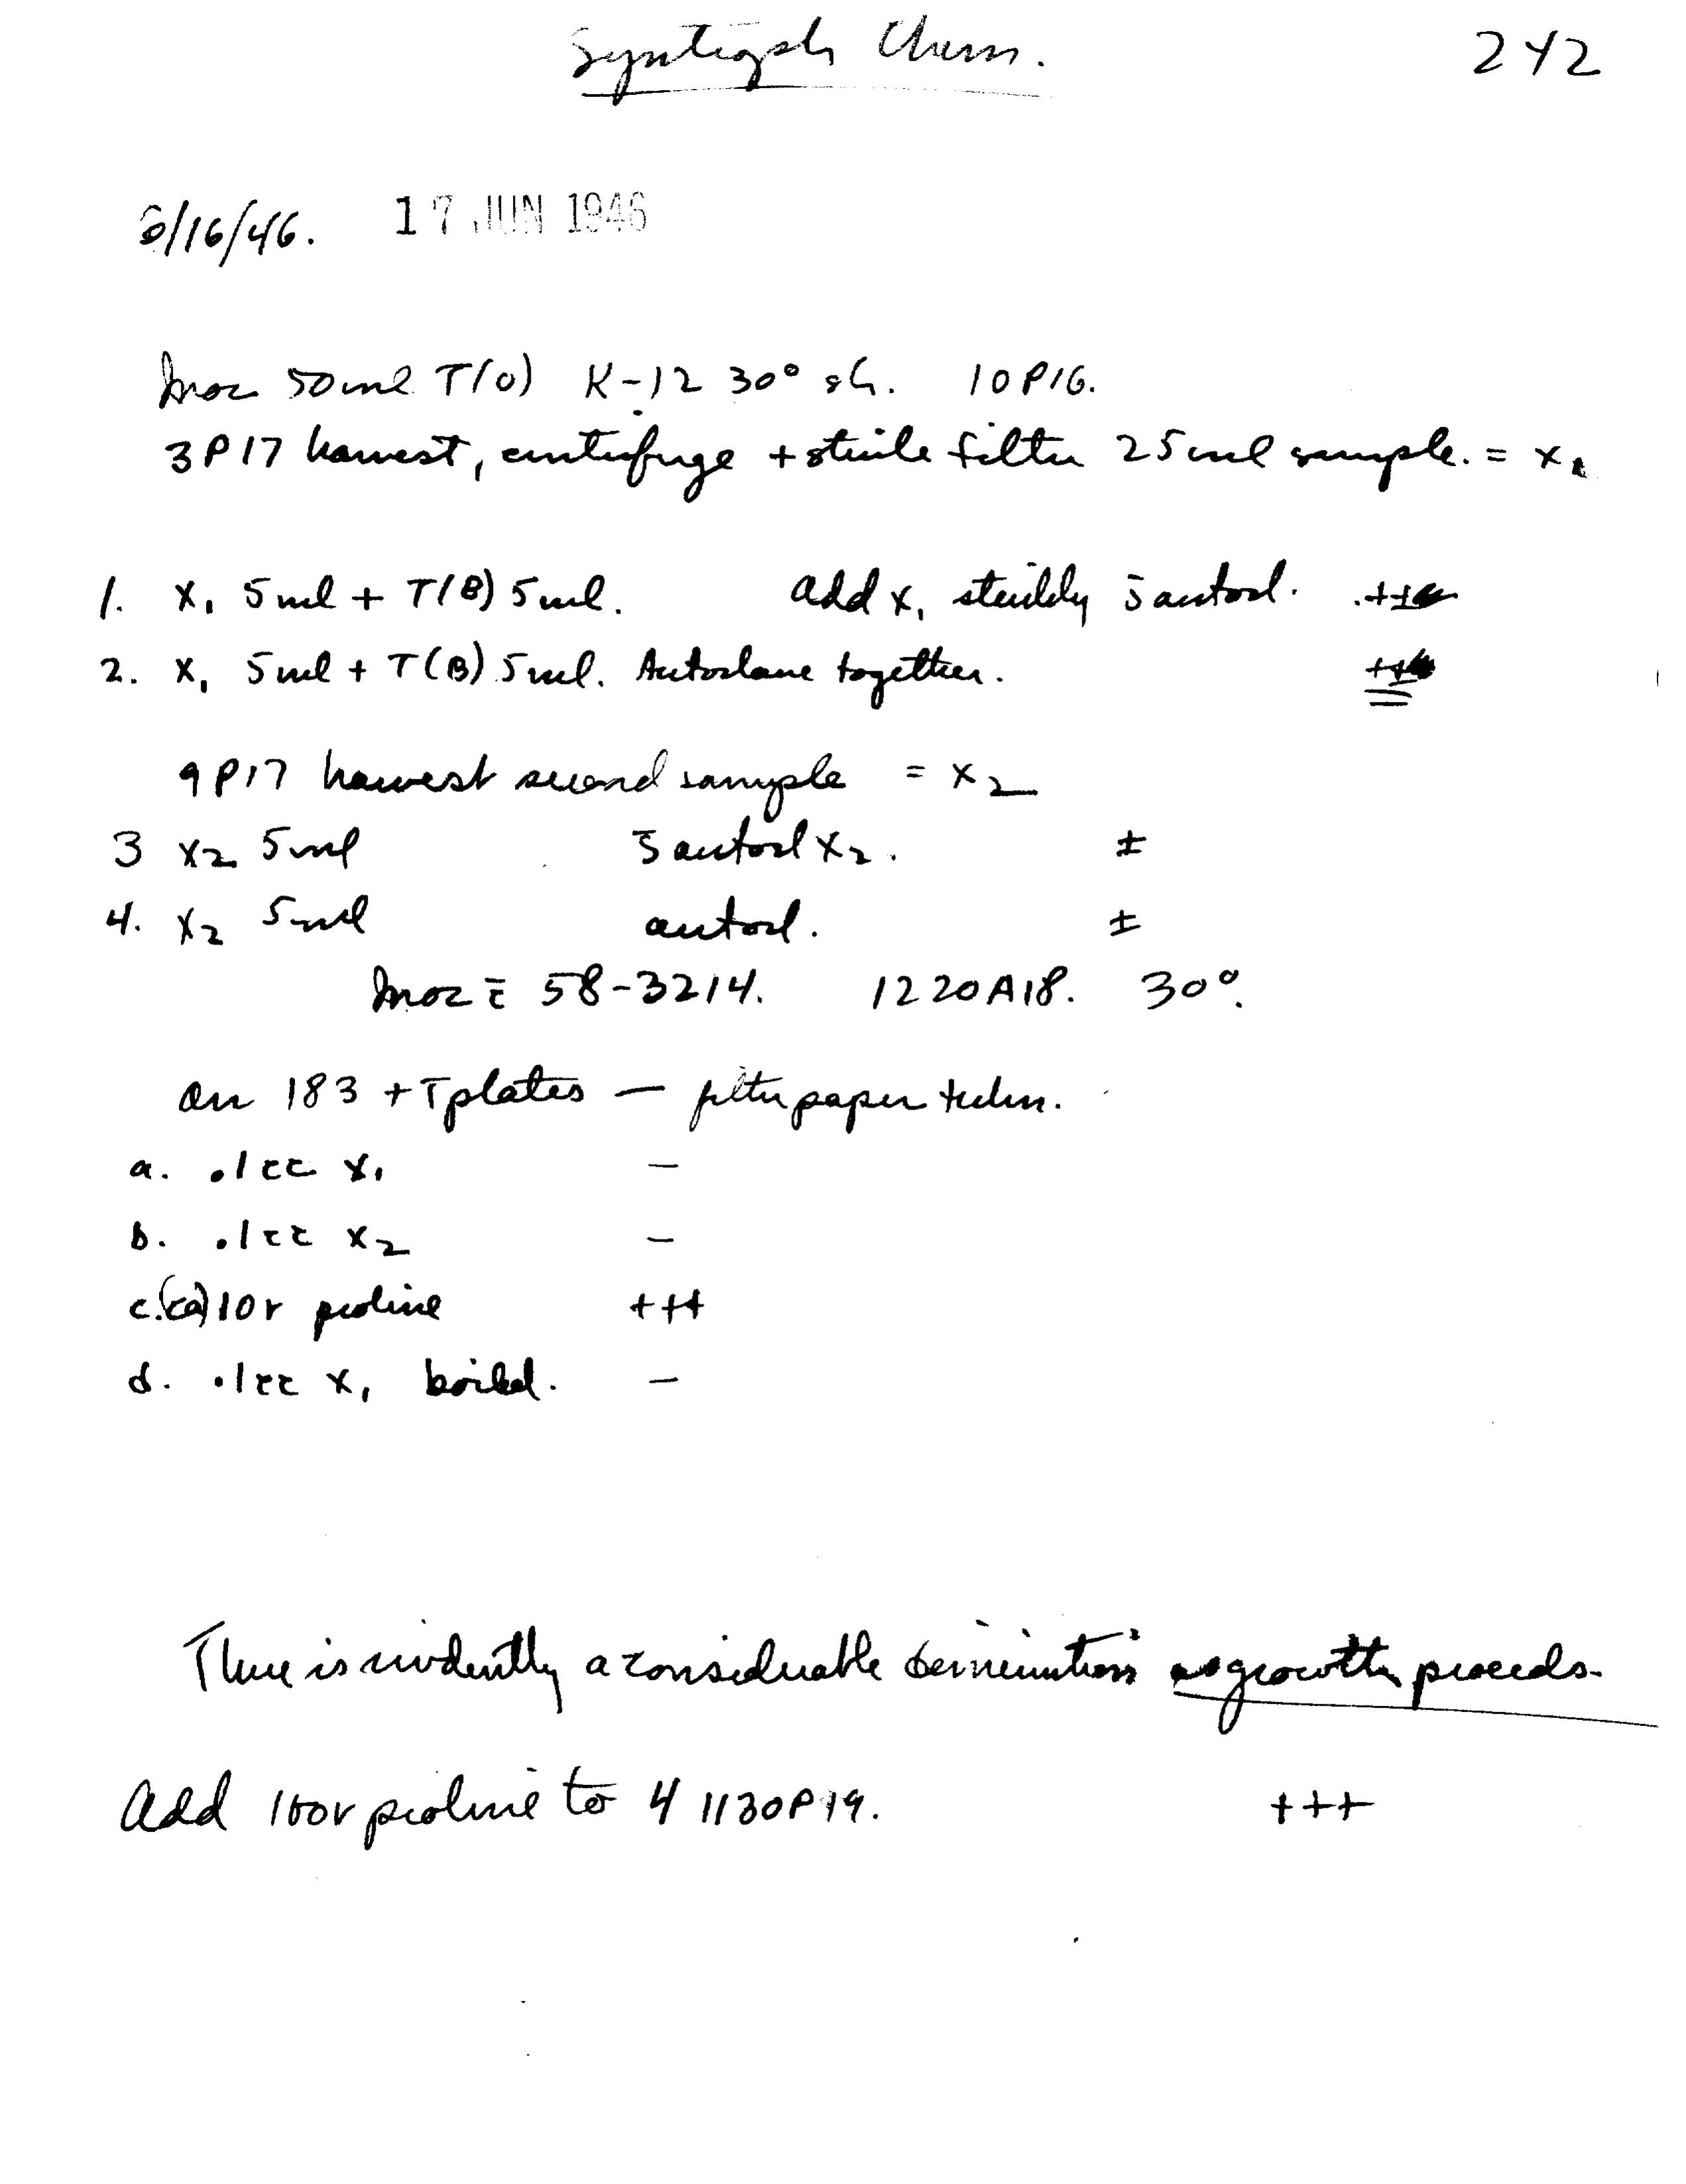 Syntroph Chem. 242
6/16/46. 17 JUN 1946
Inoc 50 ml T(0) K-12 30° sh. 10P16.
3P17 harvest, centrifuge + sterile filter 25 ml sample. = x₁
1. x₁ 5 ml + T(B) 5 ml. Add x₁ sterilely s̄ autocl.
2. x₁ 5 ml + T(B) 5 ml. Autoclave together.
9P17 harvest second sample = x₂
3 x₂ 5 ml s̄ autocl x₂. ±
4. x₂ 5 ml autocl. ±
Inoc c̄ 58-3214. 1220A18. 30°.
On 183 + T plates — filter paper techn.
a. .1cc x₁ —
b. .1cc x₂ —
c. (ca) 10γ proline +++
d. .1cc x₁ boiled. —
There is evidently a considerable as growth proceeds.
Add 100γ proline to 4 1130P19. +++